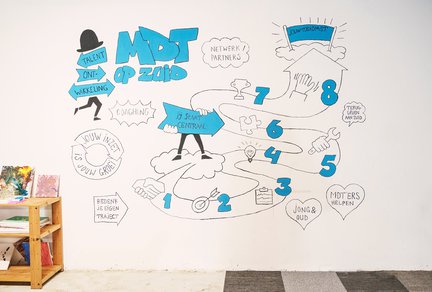 TALENT
ONT-
WIKKELING
MDT
OP ZUID
NETWERK/
PARTNERS
COACHING
JIJ STAAT
CENTRAAL
JOUW INZET
IS JOUW GROEI
BEDENK
JE EIGEN
TRAJECT
1
2
3
4
5
6
7
8
TERUG
GEVEN
AAN ZUID
JONG &
OUD
MDT'ERS
HELPEN